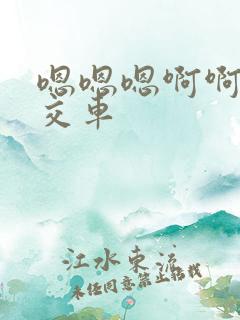 嗯嗯嗯啊啊
交车
江水东流
未经同意禁止转载